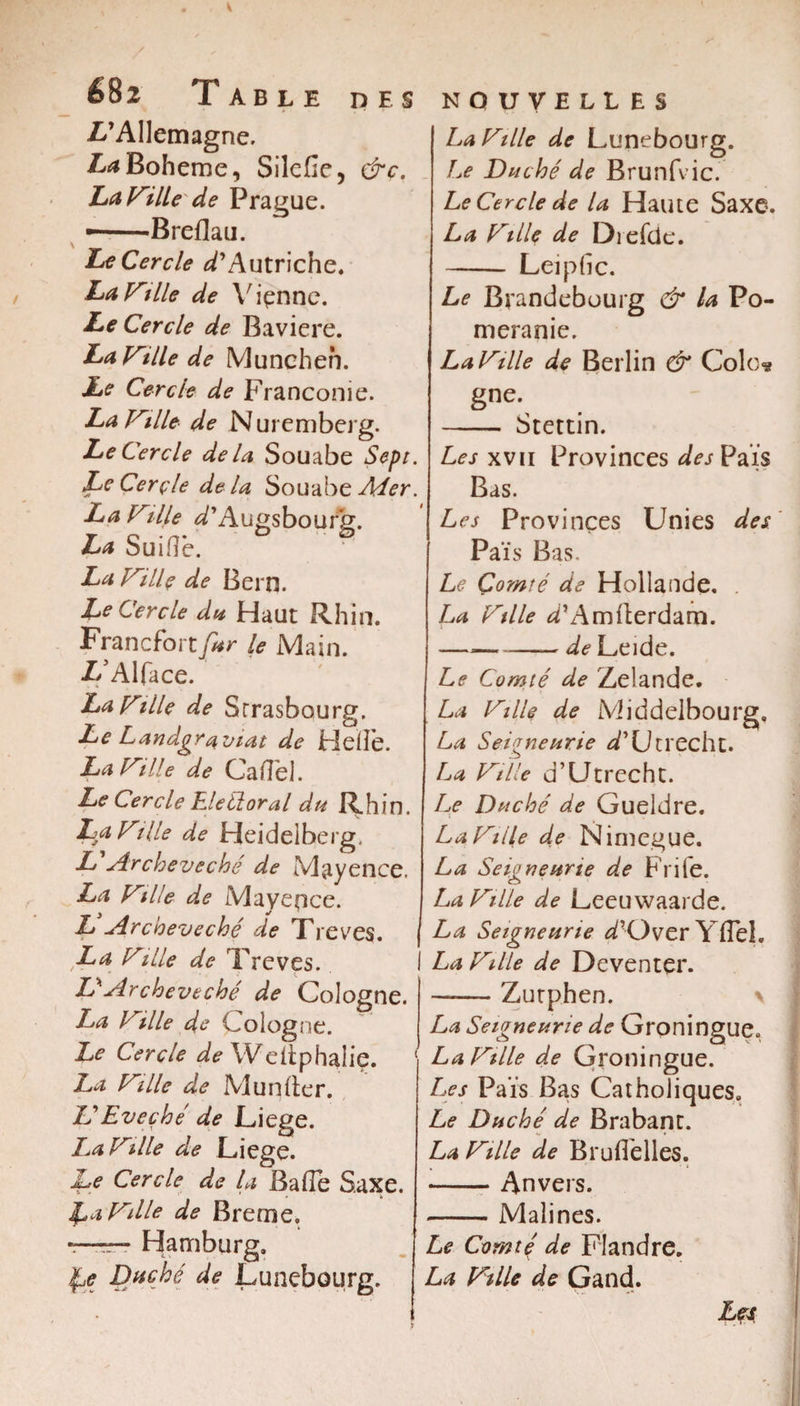 682 TABLE DES NOUVELLES
L'Allemagne.
La Boheme, Silesie, &c.
La Ville de Prague.
——Breslau.
Le Cercle d'Autriche.
La Ville de Vienne.
Le Cercle de Baviere.
La Ville de Munchen.
Le Cercle de Franconie.
La Ville de Nuremberg.
Le Cercle de la Souabe Sept.
Le Cercle de la Souabe Mer.
La Ville d'Augsbourg.
La Suisse.
La Ville de Bern.
Le Cercle du Haut Rhin.
Francfort sur le Main.
L'Alsace.
La Ville de Strasbourg.
Le Landgraviat de Hesse.
La Ville de Cassel.
Le Cercle Electoral du Rhin.
La Ville de Heidelberg.
L'Archeveché de Mayence.
La Ville de Mayence.
L'Archeveché de Treves.
La Ville de Treves.
L'Archeveché de Cologne.
La Ville de Cologne.
Le Cercle de Westphalie.
La Ville de Munster.
L'Eveché de Liege.
La Ville de Liege.
Le Cercle de la Basse Saxe.
La Ville de Breme.
—— Hamburg.
Le Duché de Lunebourg.
La Ville de Lunebourg.
Le Duché de Brunsvic.
Le Cercle de la Haute Saxe.
La Ville de Dresde.
—— Leipsic.
Le Brandebourg & la Po-
meranie.
La Ville de Berlin & Colo-
gne.
—— Stettin.
Les XVII Provinces des Païs
Bas.
Les Provinces Unies des
Païs Bas.
Le Comté de Hollande.
La Ville d'Amsterdam.
—— de Leide.
Le Comté de Zelande.
La Ville de Middelbourg.
La Seigneurie d'Utrecht.
La Ville d'Utrecht.
Le Duché de Gueldre.
La Ville de Nimegue.
La Seigneurie de Frise.
La Ville de Leeuwaarde.
La Seigneurie d'Over Yssel.
La Ville de Deventer.
—— Zutphen.
La Seigneurie de Groningue.
La Ville de Groningue.
Les Païs Bas Catholiques.
Le Duché de Brabant.
La Ville de Brusselles.
—— Anvers.
—— Malines.
Le Comté de Flandre.
La Ville de Gand.
Les